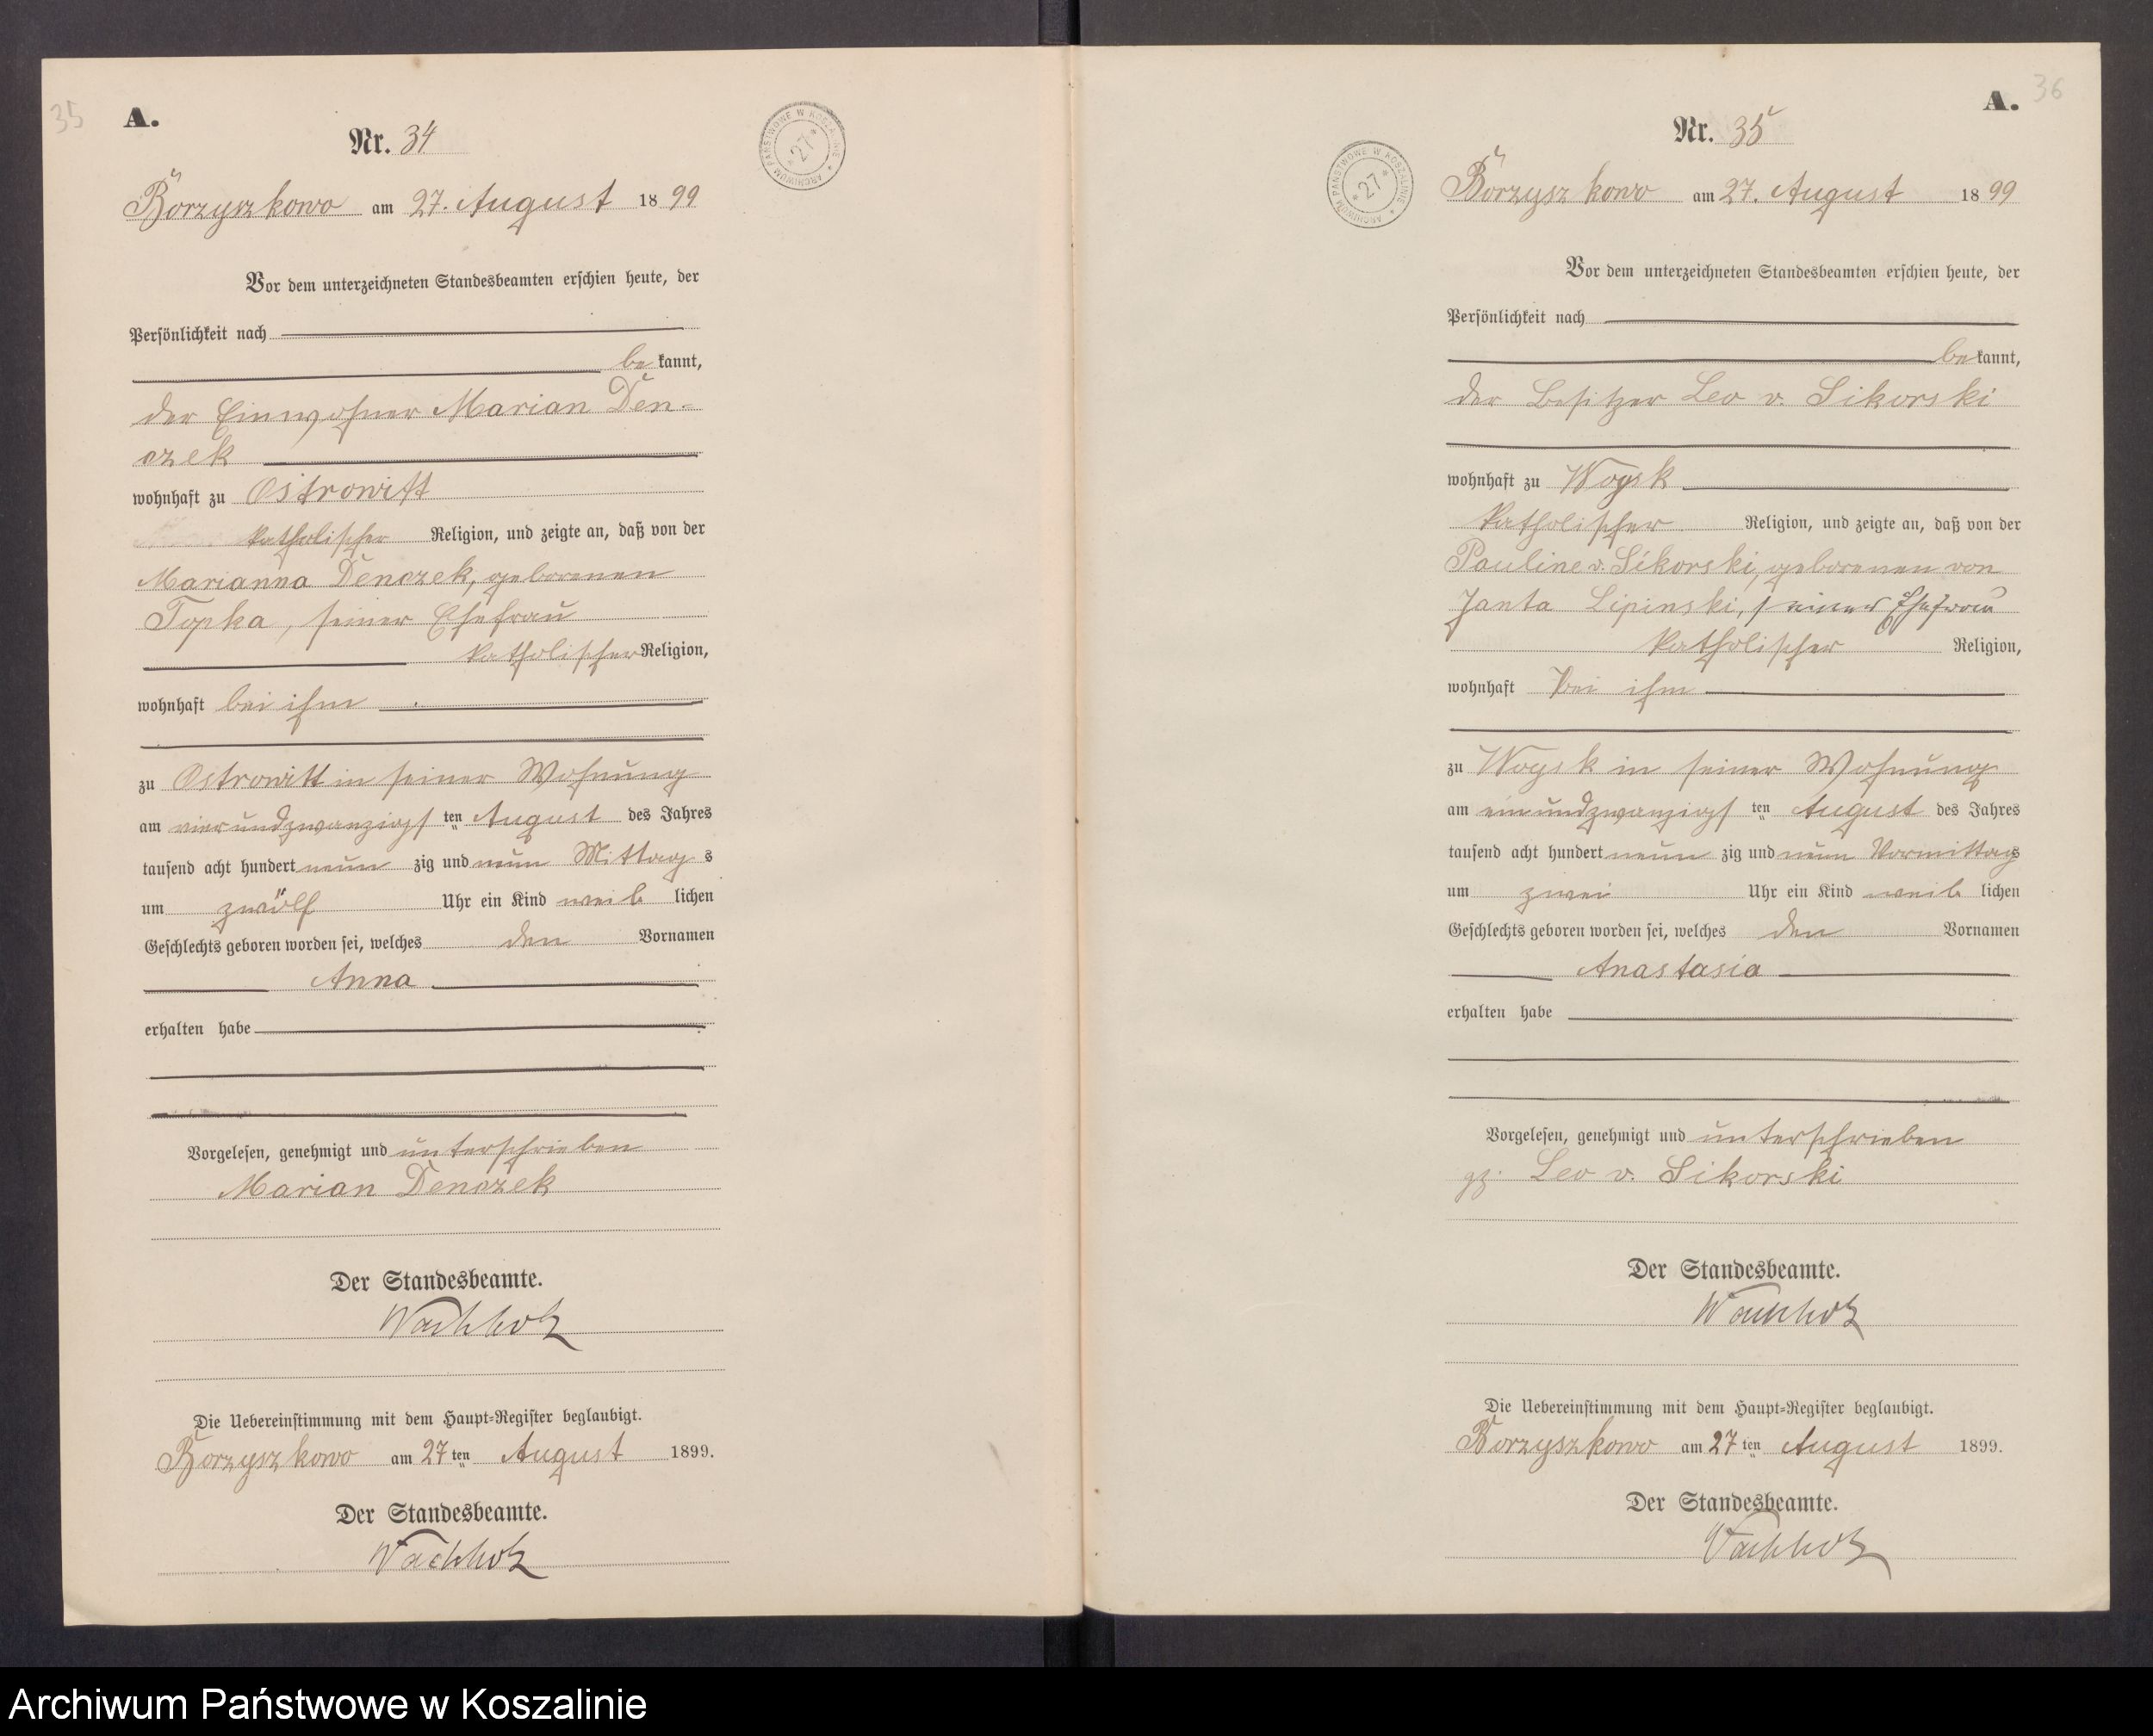 35
A.
Nr. 34
ARCHIWUM PAŃSTWOWE W KOSZALINIE * 27 *
Borzyszkowo am 27. August 1899
Vor dem unterzeichneten Standesbeamten erschien heute, der
Persönlichkeit nach
bekannt,
der Einwohner Marian Den-
czek
wohnhaft zu Ostrowitt
katholischer Religion, und zeigte an, daß von der
Marianna Denczek, geborenen
Topka, seiner Ehefrau
katholischer Religion,
wohnhaft bei ihm
zu Ostrowitt in seiner Wohnung
am vierundzwanzigsten August des Jahres
tausend acht hundert neunzig und neun Mittags
um zwölf Uhr ein Kind weiblichen
Geschlechts geboren worden sei, welches den Vornamen
Anna
erhalten habe
Vorgelesen, genehmigt und unterschrieben
Marian Denczek
Der Standesbeamte.
Wachholz
Die Uebereinstimmung mit dem Haupt-Register beglaubigt.
Borzyszkowo am 27ten August 1899.
Der Standesbeamte.
Wachholz
36
A.
Nr. 35
ARCHIWUM PAŃSTWOWE W KOSZALINIE * 27 *
Borzyszkowo am 27. August 1899
Vor dem unterzeichneten Standesbeamten erschien heute, der
Persönlichkeit nach
bekannt,
der Besitzer Leo v. Sikorski
wohnhaft zu Woysk
katholischer Religion, und zeigte an, daß von der
Pauline v. Sikorski, geborenen von
Janta Lipinski, seiner Ehefrau
katholischer Religion,
wohnhaft bei ihm
zu Woysk in seiner Wohnung
am einundzwanzigsten August des Jahres
tausend acht hundert neunzig und neun Vormittags
um zwei Uhr ein Kind weiblichen
Geschlechts geboren worden sei, welches den Vornamen
Anastasia
erhalten habe
Vorgelesen, genehmigt und unterschrieben
gz. Leo v. Sikorski
Der Standesbeamte.
Wachholz
Die Uebereinstimmung mit dem Haupt-Register beglaubigt.
Borzyszkowo am 27ten August 1899.
Der Standesbeamte.
Wachholz
Archiwum Państwowe w Koszalinie